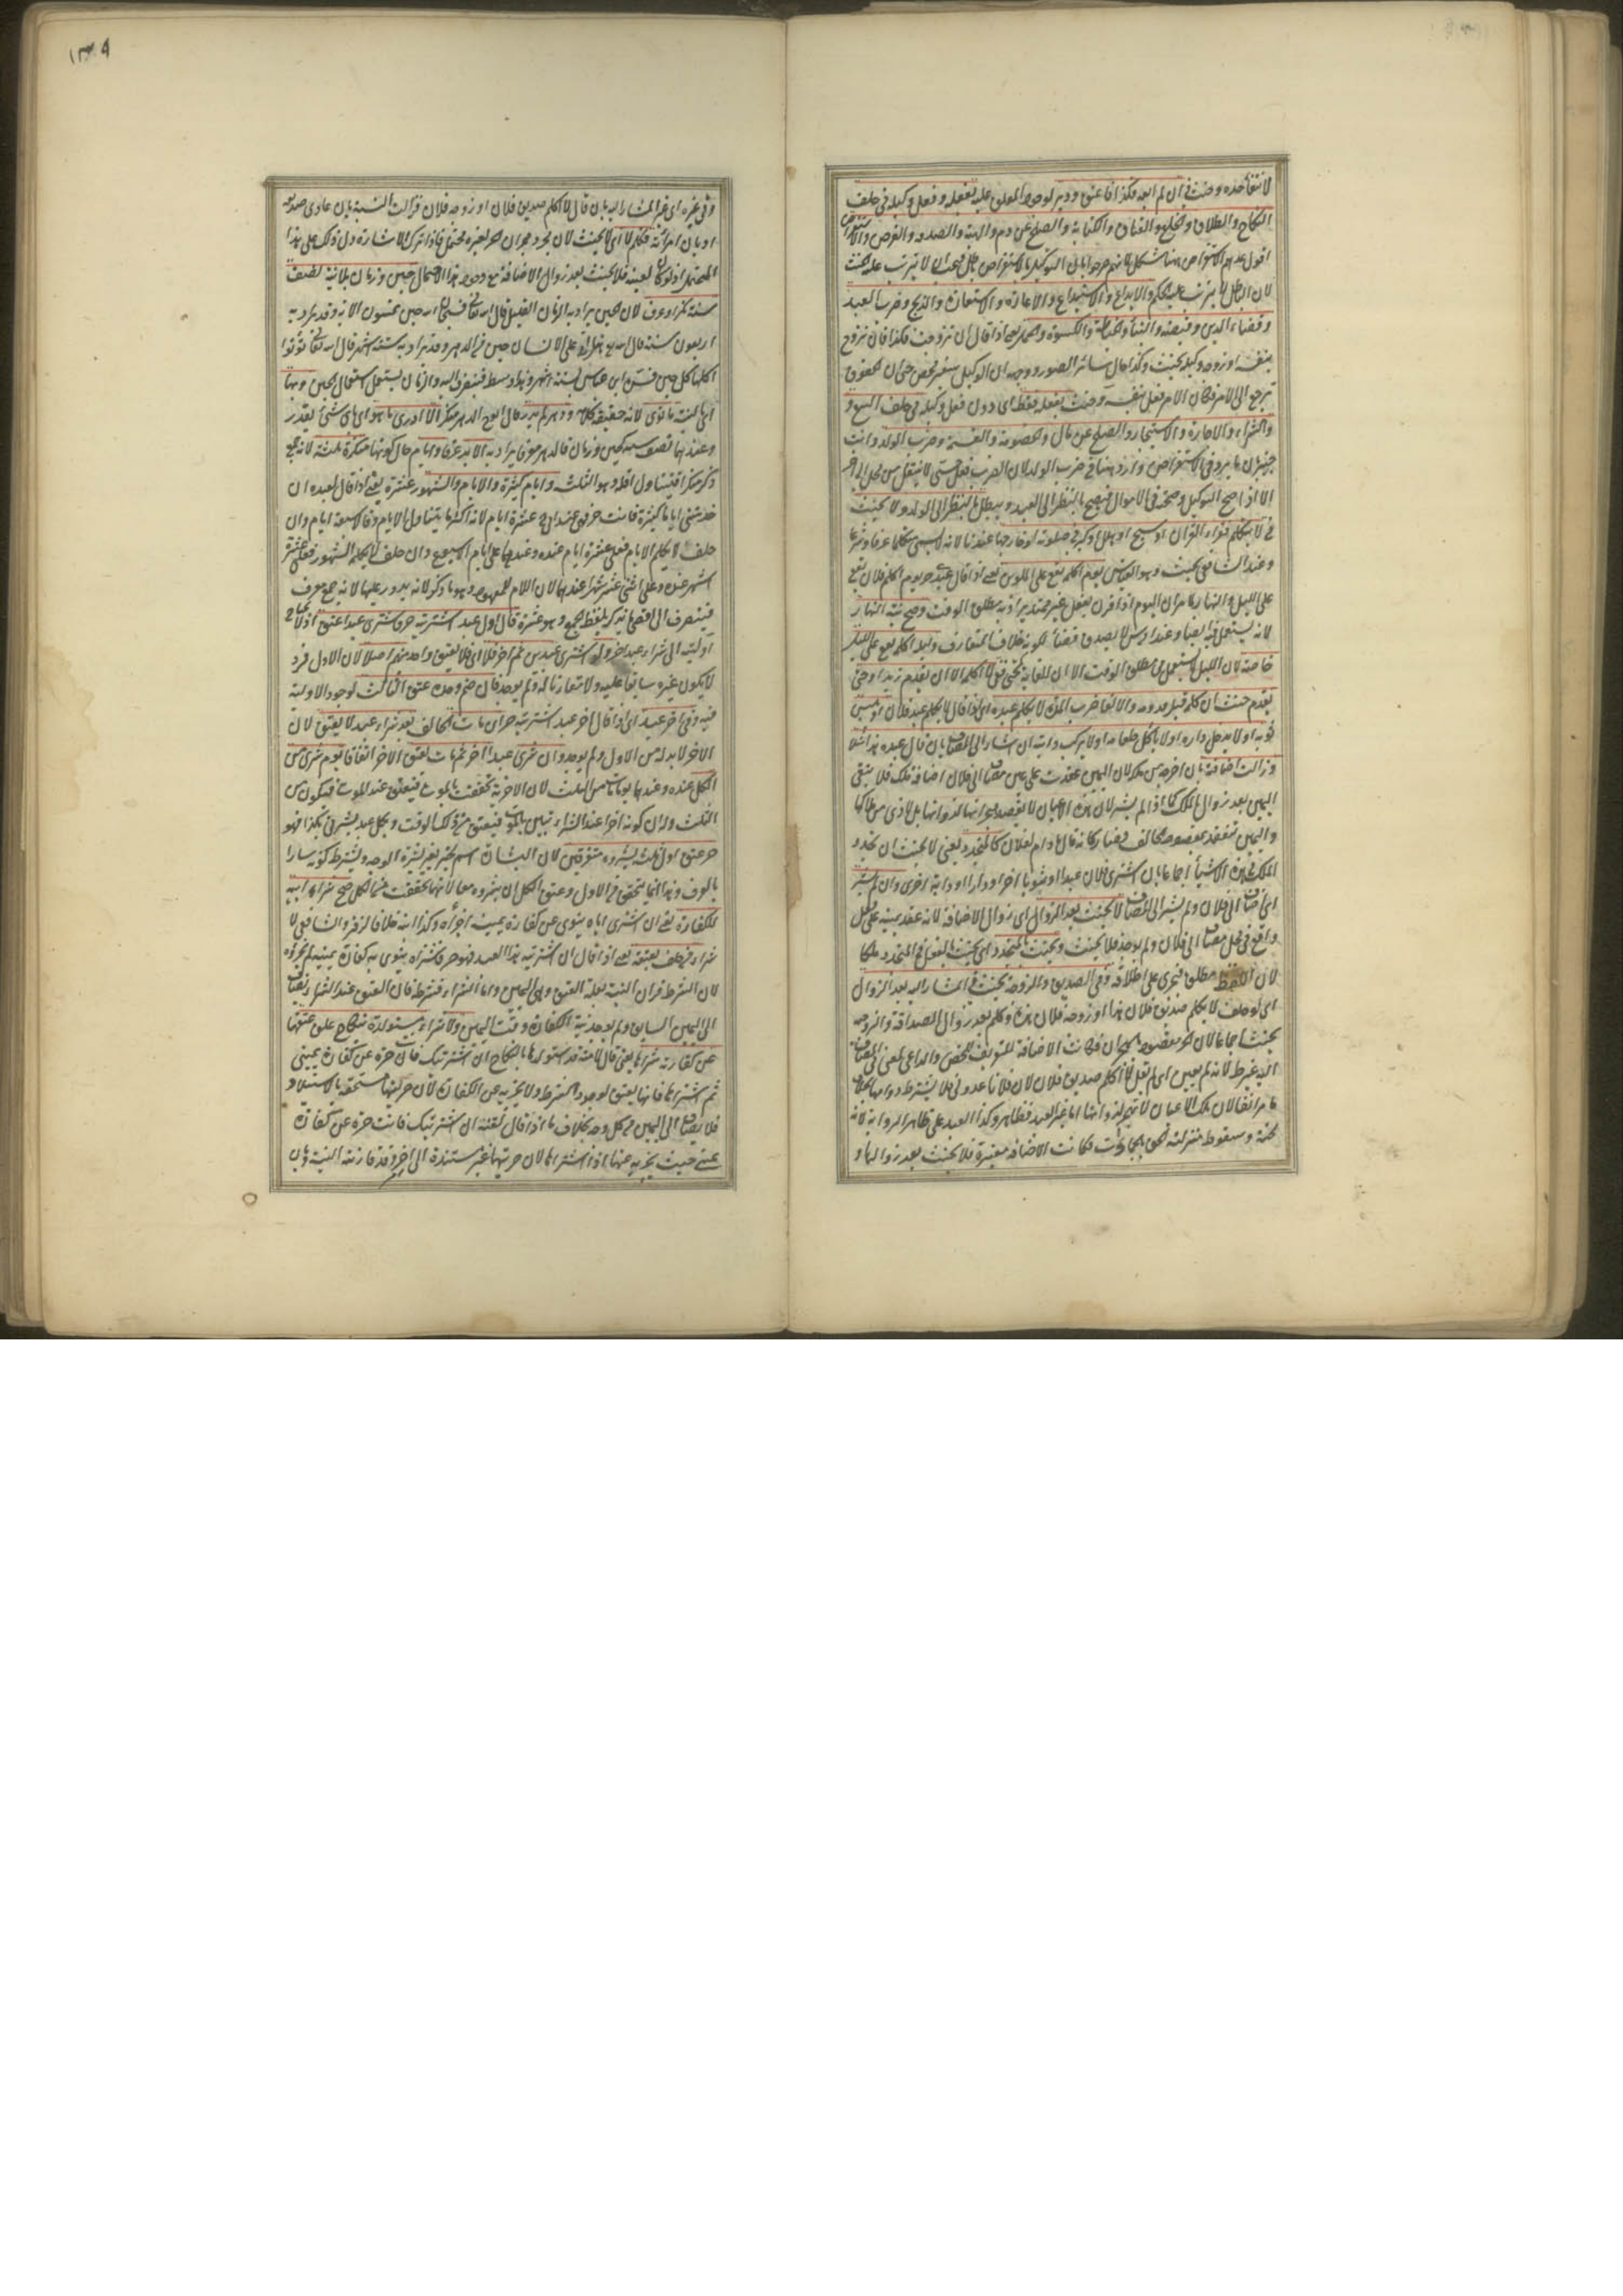 لانتفأخده وحنث في ان لم ابعه فكذا فاعتق او دبر لوجود المعلق عليه بفعله وفعل وكيله في حلف
النكاح والطلاق والخلع والعتاق والكتابة والصلح عن دم والهبة والصدقة والقرض والاستقراض
اقول عدهم الاستقراض ههنا مشكل لانهم صرحوا بان التوكيل بالاستقراض باطل لا يترتب عليه الحنث
لان الباطل لا يترتب عليه الحكم والايداع والاستيداع والاعارة والاستعارة والذبح وضرب العبد
وقضاء الدين وقبضه والبناء والخياطة والكسوة والحمل يعني اذا قال ان تزوجت فكذا فان تزوج
بنفسه او زوجه وكيله يحنث وكذا حال سائر الصور ووجهه ان الوكيل سفير محض حتى ان الحقوق
ترجع الى الامر فكان الامر فعل بنفسه وحنث بفعله فقط اي دون فعل وكيله في حلف البيع و
والشراء والاجارة والاستيجار والصلح عن مال والخصومة والقسمة وضرب الولد وانت
خبير بان ما يرد في الاستقراض وارد ههنا في ضرب الولد لان الضرب فعل حسي لا ينتقل من محل الى اخر
الا اذا صح التوكيل وصحته في الاموال فيصح بالنظر الى العبد ويبطل بالنظر الى الولد ولا يحنث
في لا يتكلم فقراء القرآن او سبح او هلل او كبر في صلوته او خارجها عندنا لانه لا يسمى متكلما عرفا وشرعا
وعند الشافعي يحنث وهو القياس يوم اكلمه يقع على الملوين يعني اذا قال عبده حر يوم اكلم فلان يقع
على الليل والنهار لما مر ان اليوم اذا قرن بفعل غير ممتد يراد به مطلق الوقت وصح نية النهار
لانه يستعمل فيه ايضا وعند ابي يوسف لا يصدق قضاء لكونه خلاف المتعارف وليلة اكلمه يقع على الليل
خاصة لان الليل لا يستعمل في مطلق الوقت الا ان للغاية كحتى ففي لا اكلمه الا ان يقدم زيد او حتى
يقدم حنث ان كلمه قبل قدومه والا لفا ضرب المدة لا يكلم عبده اي اذا قال لا يكلم عبد فلان او يلبس
ثوبه او لا يدخل داره او لا يأكل طعامه او لا يركب دابته ان اشار الى المضاف بان قال عبده هذا مثلا
وزالت اضافته بان اخرجه من ملكه لان اليمين عقدت على عين مضاف الى فلان اضافة ملك فلا يبقى
اليمين بعد زوال الملك كما اذا لم يشر لان هذه الاعيان لا يقصد هجرانها لذواتها بل لاذى من ملاكها
واليمين تنعقد بمقصود الحالف فصار كانه قال ما دام لفلان كالمتجدد يعني لا يحنث ان تجدد
الملك في هذه الاشياء اجماعا بان اشترى فلان عبدا او ثوبا اخر او دارا او دابة اخرى وان لم يشر
اي اضاف الى فلان ولم يشر الى المضاف لا يحنث بعد الزوال اي زوال الاضافة لانه عقد يمينه على فعل
واقع في محل مضاف الى فلان ولم يوجد فلا يحنث ويحنث بالمتجدد اي يحنث بالفعل في المتجدد ملكا
لان اللفظ مطلق فيجري على اطلاقه وفي الصديق والزوجة يحنث في المشار اليه بعد الزوال
اي لو حلف لا يكلم صديق فلان هذا او زوجة فلان هذه وكلم بعد زوال الصداقة والزوجية
يحنث اجماعا لان الحر مقصود بالهجران فكانت الاضافة للتعريف المحض والداعي لمعنى في المضاف
اليه غير ظاهر لانه لم يعين اي لم يقل لا اكلم صديق فلان لان فلانا عدو لي فلا يشترط دوامها بخلاف
ما مر انفا لان تلك الاعيان لا تهجر لذواتها اما غير العبد فظاهر وكذا العبد على ظاهر الرواية لانه
لخسة وسقوط منزلته الحق بالجمادات فكانت الاضافة معتبرة فلا يحنث بعد زوالها و
١٣٠٩
وفي غيره اي غير المشار اليه بان قال لا اكلم صديق فلان او زوجة فلان فزالت النسبة بان عادى صديقه
او بان امرأته فكلم لا اي لا يحنث لان مجرد هجران الحر لغيره محتمل فاذا ترك الاشارة دل ذلك على هذا
المحتمل اذ لو كان لعينه فلا يحنث بعد زوال الاضافة مع وجود هذا الاحتمال حين وزمان بلا نية نصف
سنة نكر او عرف لان الحين يراد به الزمان القليل قال الله تعالى فسبحان الله حين تمسون الاية وقد يراد به
اربعون سنة قال الله تعالى هل اتى على الانسان حين من الدهر وقد يراد به ستة اشهر قال الله تعالى تؤتي
اكلها كل حين فسره ابن عباس بستة اشهر وهذا وسط فينصرف اليه والزمان يستعمل استعمال الحين وبها
اي بالنية ما نوى لانه حقيقة كلامه ودهر لم يدر قال ابو ح الدهر منكرا لا ادري ما هو اي باي شيء يقدر
وعندهما نصف سنة كحين وزمان فالدهر معرفا يراد به الابد عرفا وايام حال كونها منكرة ثلثة لانه جمع
ذكر منكرا فيتناول اقله وهو الثلث وايام كثيرة والايام والشهور عشرة يعني اذا قال لعبده ان
خدمتني اياما كثيرة فانت حر فهو عند ابي ح عشرة ايام لانه اكثر ما يتناوله الايام وقالا سبعة ايام وان
حلف لا يكلم الايام فعلى عشرة ايام عنده وعندهما على ايام الاسبوع وان حلف لا يكلمه الشهور فعلى عشرة
اشهر عنده وعلى اثنى عشر شهرا عندهما لان اللام للمعهود وهو ما ذكر لانه يدور عليها لانه جمع معرف
فينصرف الى اقصى ما يذكر بلفظ الجمع وهو عشرة قال اول عبد اشتريته حر فاشترى عبدا عتق اذ لا يحتاج
اوليته الى شراء عبد اخر ولو اشترى عبدين ثم اخر فلا اي فلا يعتق واحد منهم اصلا لان الاول فرد
لا يكون غيره سابقا عليه ولا مقارنا له ولم يوجد فان ضم وحده عتق الثالث لوجود الاولية
فيه وفي اخر عبد اي اذا قال اخر عبد اشتريته حر ان مات الحالف بعد شراء عبد لا يعتق لان
الاخر لا بد له من الاول ولم يوجد وان شرى عبدا اخر ثم مات يعتق الاخر اتفاقا يوم شرى من
الكل عنده وعندهما يوم مات من الثلث لان الاخرية تحققت بالموت فيعتق عند الموت فيكون من
الثلث وله ان كونه اخرا عند الشراء تبين بالموت فيعتق من ذلك الوقت وبكل عبد بشرني بكذا فهو
حر عتق اول ثلثة بشروه متفرقين لان البشارة اسم لخبر يغير بشرة الوجه ويشترط كونه سارا
بالعرف وهذا انما يتحقق في الاول وعتق الكل ان بشروه معا لانها تحققت من الكل صح شراء ابيه
للكفارة يعني ان اشترى اباه ينوي عن كفارة يمينه اجزأه وكذا ابنه خلافا لزفر والشافعي لا
شراء من حلف بعتقه يعني اذا قال ان اشتريت هذا العبد فهو حر فشراه ينوي به كفارة يمينه لم يجزه
لان الشرط قران النية بعلة العتق وهي اليمين واما الشراء فشرط فان العتق عند الشراء يضاف
الى اليمين السابق ولم يوجد نية الكفارة وقت اليمين ولا شراء مستولدة بنكاح علق عتقها
عن كفارته بشرائها يعني قال لامة قد استولدها بالنكاح ان اشتريتك فانت حرة عن كفارة يميني
ثم اشتراها فانها يعتق لوجود الشرط ولا يجزيه عن الكفارة لان حريتها مستحقة بالاستيلاد
فلا يضاف الى اليمين من كل وجه بخلاف ما اذا قال لقنة ان اشتريتك فانت حرة عن كفارة
يميني حيث يجزيه عنها اذا اشتراها لان حريتها غير مستندة الى اخر وقد قارنته النية وبان